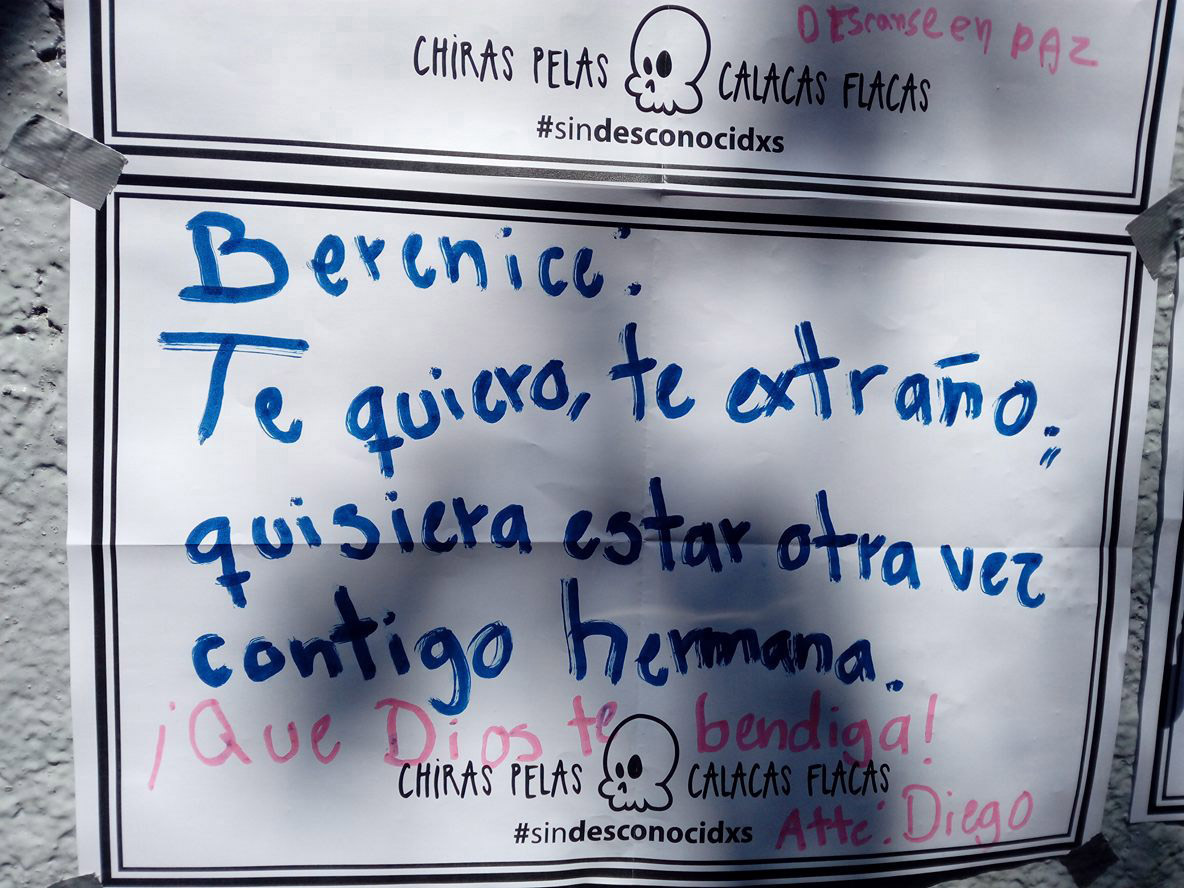 Descanse en PAZ
CHIRAS PELAS CALACAS FLACAS
#sindesconocidxs
Berenice:
Te quiero, te extraño;
quisiera estar otra vez
contigo hermana.
¡Que Dios te bendiga!
CHIRAS PELAS CALACAS FLACAS
#sindesconocidxs Atte: Diego